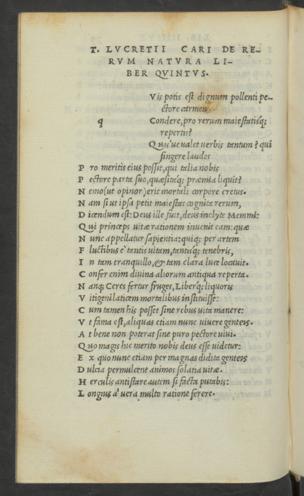 T. LVCRETII CARI DE RE-
RVM NATVRA LI-
BER QVINTVS.
q
Vis potis est dignum pollenti pe-
ctore carmen
Condere, pro rerum maiestatisq;
repertis?
Quis'ue ualet uerbis tantum? qui
fingere laudes
P ro meritis eius possit, qui talia nobis
P ectore parta suo, quæsitaq; præmia liquit?
N emo (ut opinor) erit mortali corpore cretus.
N am si ut ipsa petit maiestas cognita rerum,
D icendum est: Deus ille fuit, deus inclyte Memmi:
Q ui princeps uitæ rationem inuenit eam: quæ
N unc appellatur sapientia: quiq; per artem
F luctibus è tantis uitam, tantisq; tenebris,
I n tam tranquillo, & tam clara luce locauit.
C onfer enim diuina aliorum antiqua reperta.
N anq; Ceres fertur fruges, Liberq; liquoris
V itigeni laticem mortalibus instituisse:
C um tamen his posset sine rebus uita manere:
V t fama est, aliquas etiam nunc uiuere gentes.
A t bene non poterat sine puro pectore uiui.
Q uo magis hic merito nobis deus esse uidetur:
E x quo nunc etiam per magnas didita gentes
D ulcia permulcent animos solatia uitæ.
H erculis antistare autem si facta putabis:
L ongius à uera multo ratione ferere.